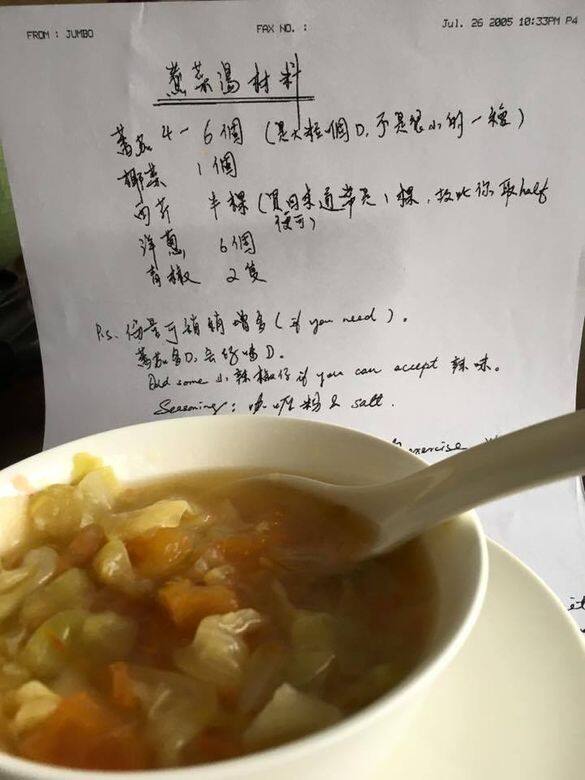 FROM : JUMBO FAX NO. : Jul. 26 2005 10:33PM P4
蕃茄 4 - 6 個 (是大粒個D,不是很小的一種)
椰菜 1 個
西芹 半棵 (買回來通常是1棵,故此你取half
便可)
洋蔥 6個
青椒 2隻
P.s. 份量可稍稍增多 (if you need).
蕃茄多D,会好味D.
Add some 小辣椒仔 if you can accept 辣味。
Seasoning: 咖喱粉 & salt.
exercise